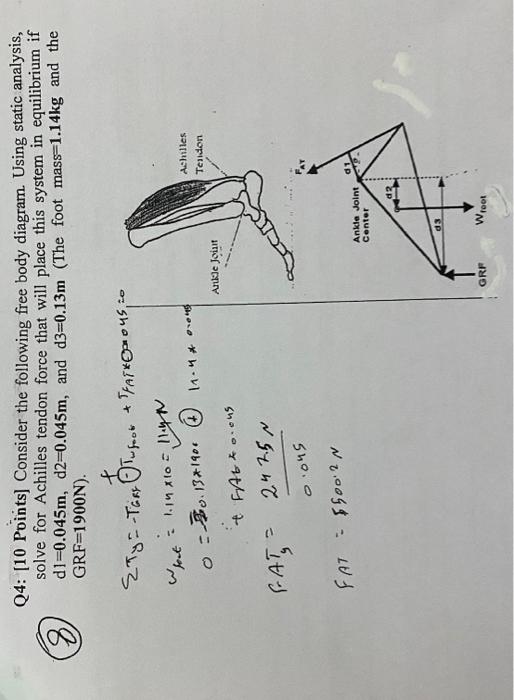 Q4: [10 Points] Consider the following free body diagram. Using static analysis,
solve for Achilles tendon force that will place this system in equilibrium if
d1=0.045m, d2=0.045m, and d3=0.13m (The foot mass=1.14kg and the
GRF=1900N).
8
Στy = -TGRF + Twfoot + TFAT*0.045=0
Wfoot = 1.14 x10 = 11.4N
0 = - 0.13*1900 + 11.4 * 0.045
+ FAt * 0.045
FAT = 2475 N
0.045
FAT = 5500.2 N
Achilles
Tendon
Ankle Joint
FAT
d1
Ankle Joint
Center
d2
d3
GRF
Wfoot